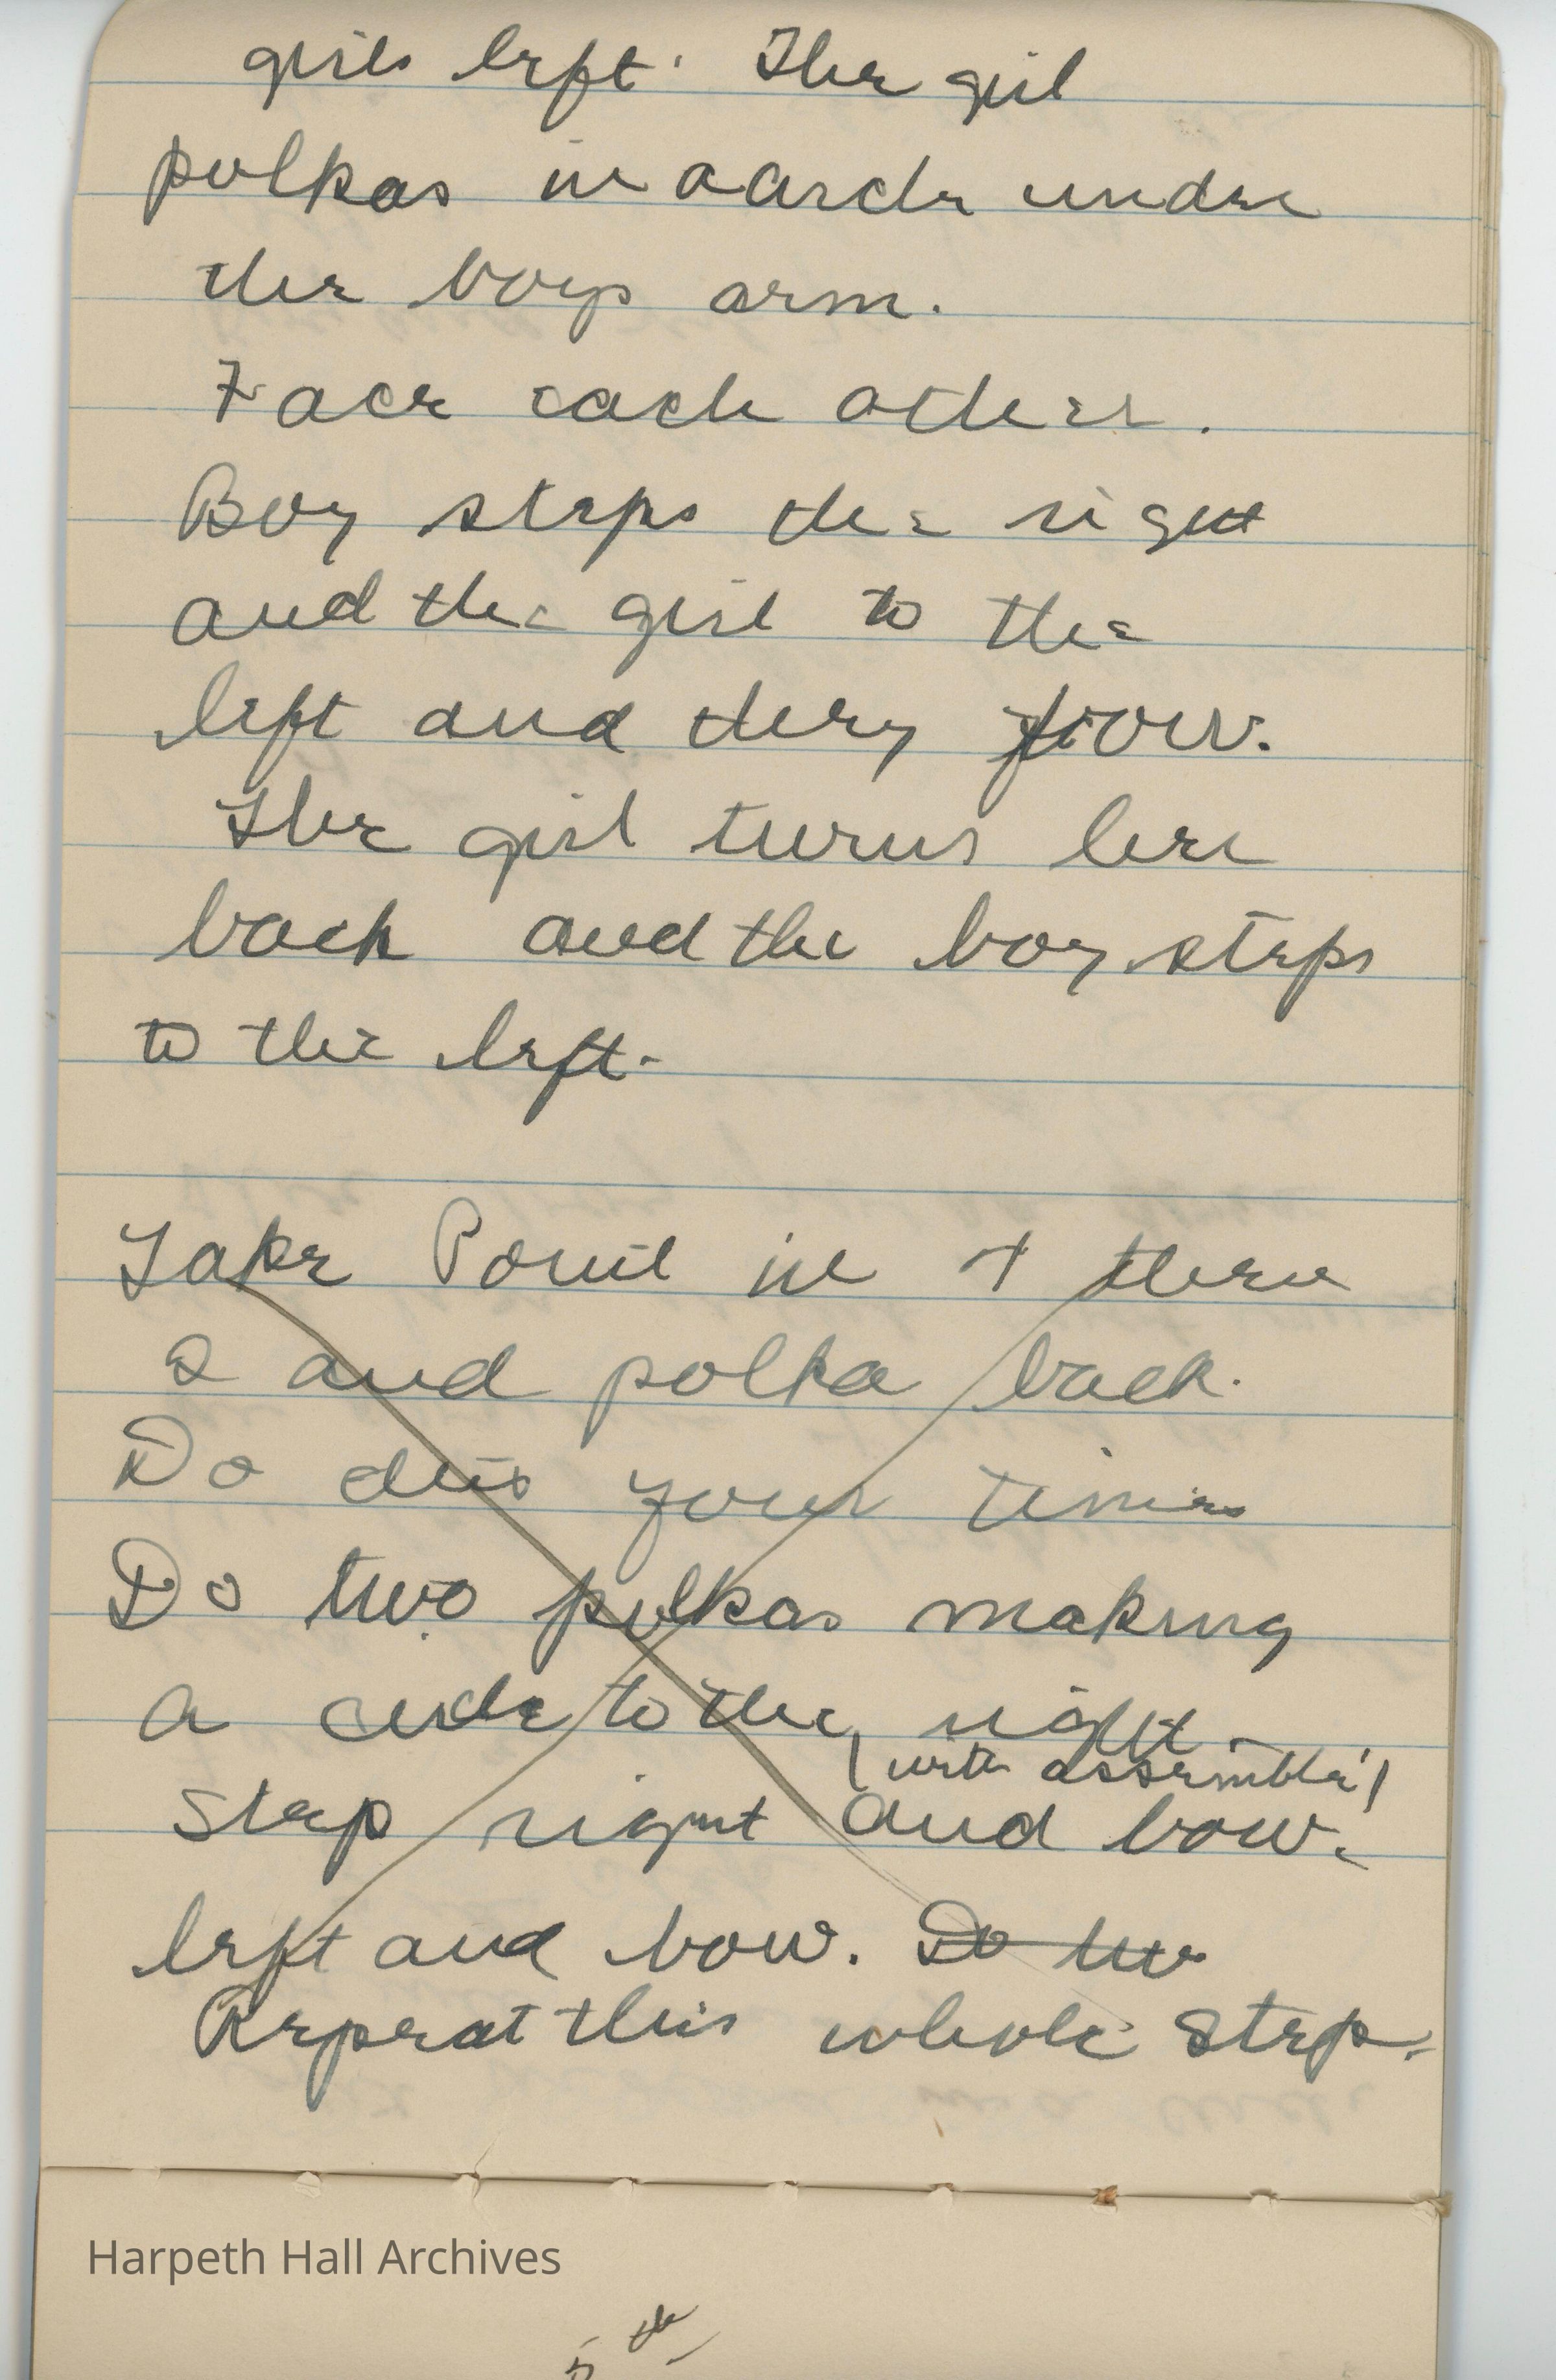 girls left. The girl
polkas in a circle under
the boys arm.
Face each other.
Boy steps the right
and the girl to the
left and they
The girl turns her
back and the boy steps
to the left.
Take Point in 4 then
2 and polka back.
Do this four times
Do two polkas making
a circle to the right
(with assemblé)
Step right and bow.
left and bow. Do two
Repeat this whole step.
Harpeth Hall Archives
5th